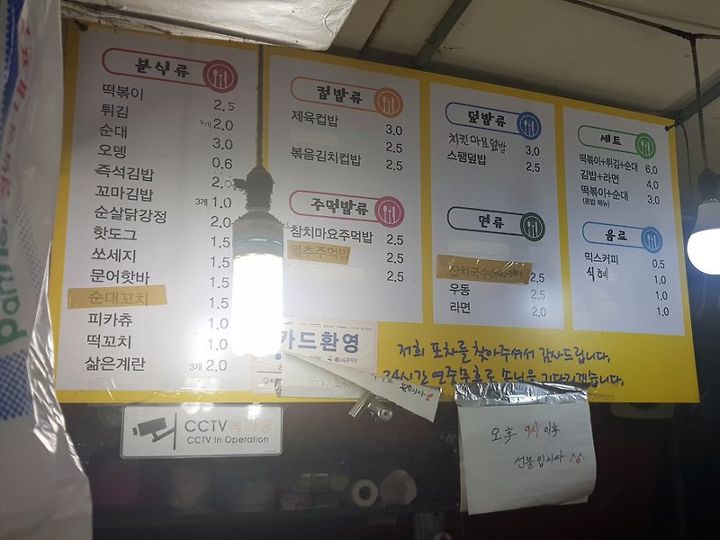 분식류
떡볶이 2.5
튀김 3개 2.0
순대 3.0
오뎅 0.6
즉석김밥 2.0
꼬마김밥 3개 1.0
순살닭강정 2.0
핫도그 1.5
쏘세지 1.5
문어핫바 1.5
순대꼬치 1.5
피카츄 1.0
떡꼬치 1.0
삶은계란 3개 2.0
컵밥류
제육컵밥 3.0
2.5
볶음김치컵밥 2.5
2.5
주먹밥류
참치마요주먹밥 2.5
멸추주먹밥 2.5
2.5
덮밥류
치킨마요덮밥 3.0
스팸덮밥 2.5
면류
잔치국수 2.5
우동 2.5
라면 2.0
세트
떡볶이+튀김+순대 6.0
김밥+라면 4.0
떡볶이+순대 3.0
(혼밥 메뉴)
음료
믹스커피 0.5
식혜 1.0
1.0
카드환영
저희 포차를 찾아주셔서 감사드립니다.
24시간 연중무휴로 손님을 기다리겠습니다.
오후 9시 이후
선불입니다
CCTV
CCTV In Operation